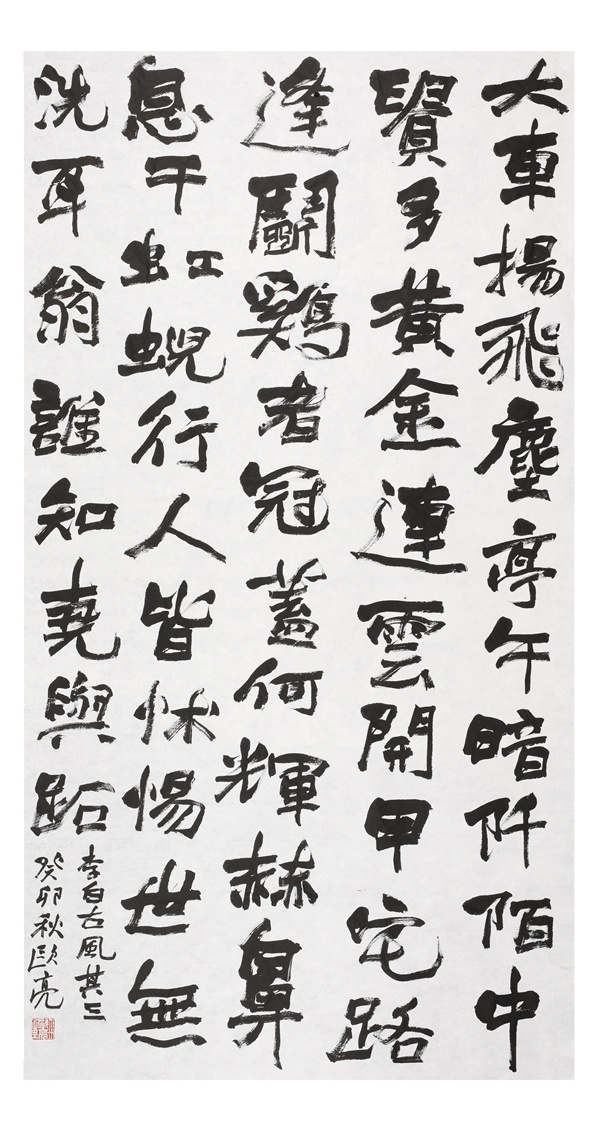 大車揚飛塵亭午暗阡陌中
貴多黃金連雲開甲宅路
逢鬭鷄者冠蓋何輝赫鼻
息干虹蜺行人皆怵惕世無
洗耳翁誰知堯與跖
李白古風其三
癸卯秋歐亮